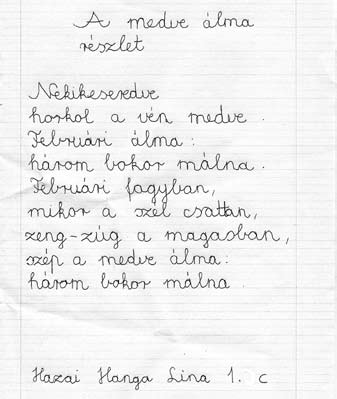 A medve álma
részlet
Nekikeseredve
horkol a vén medve.
Februári álma:
három bokor málna.
Februári fagyban,
mikor a szél csattan,
zeng-zúg a magasban,
szép a medve álma:
három bokor málna.
Hazai Hanga Lina 1. c